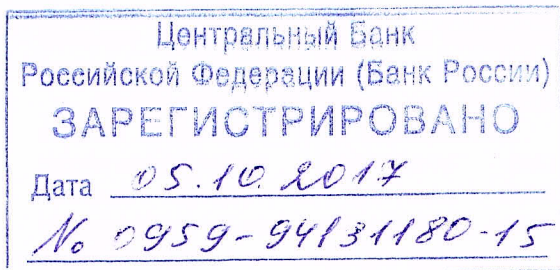 Центральный Банк
Российской Федерации (Банк России)
ЗАРЕГИСТРИРОВАНО
Дата 05.10.2017
№ 0959-94131180-15